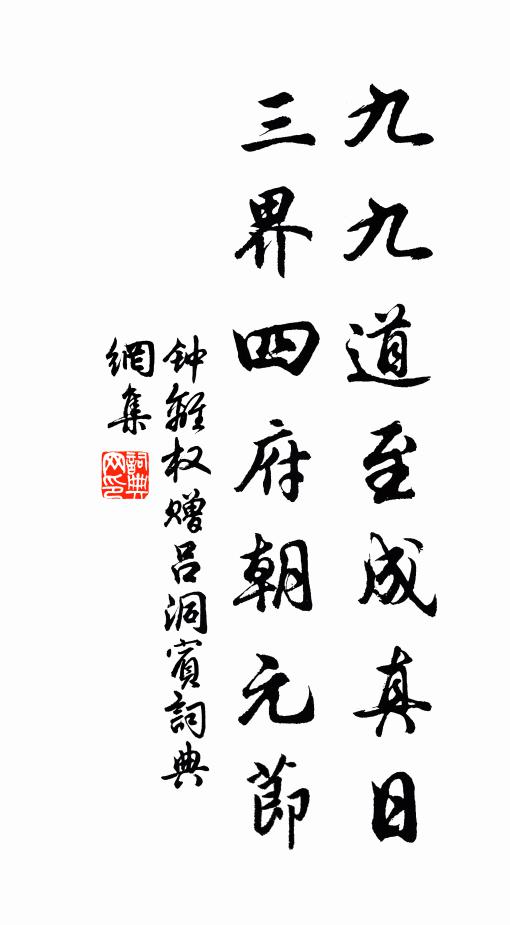 九九道至成真日
三界四府朝元節
钟離权赠吕洞賓詞典
網集
詞典网印